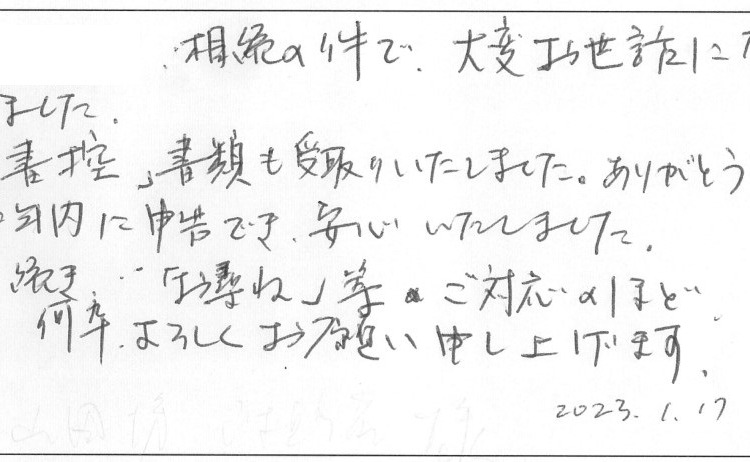 相続の件で、大変お世話にな
ました。
書控、書類も受取りいたしました。ありがとう
内に申告でき、安心いたしました。
続き、「お尋ね」等のご対応のほど、
何卒、よろしくお願い申し上げます。
2023.1.17